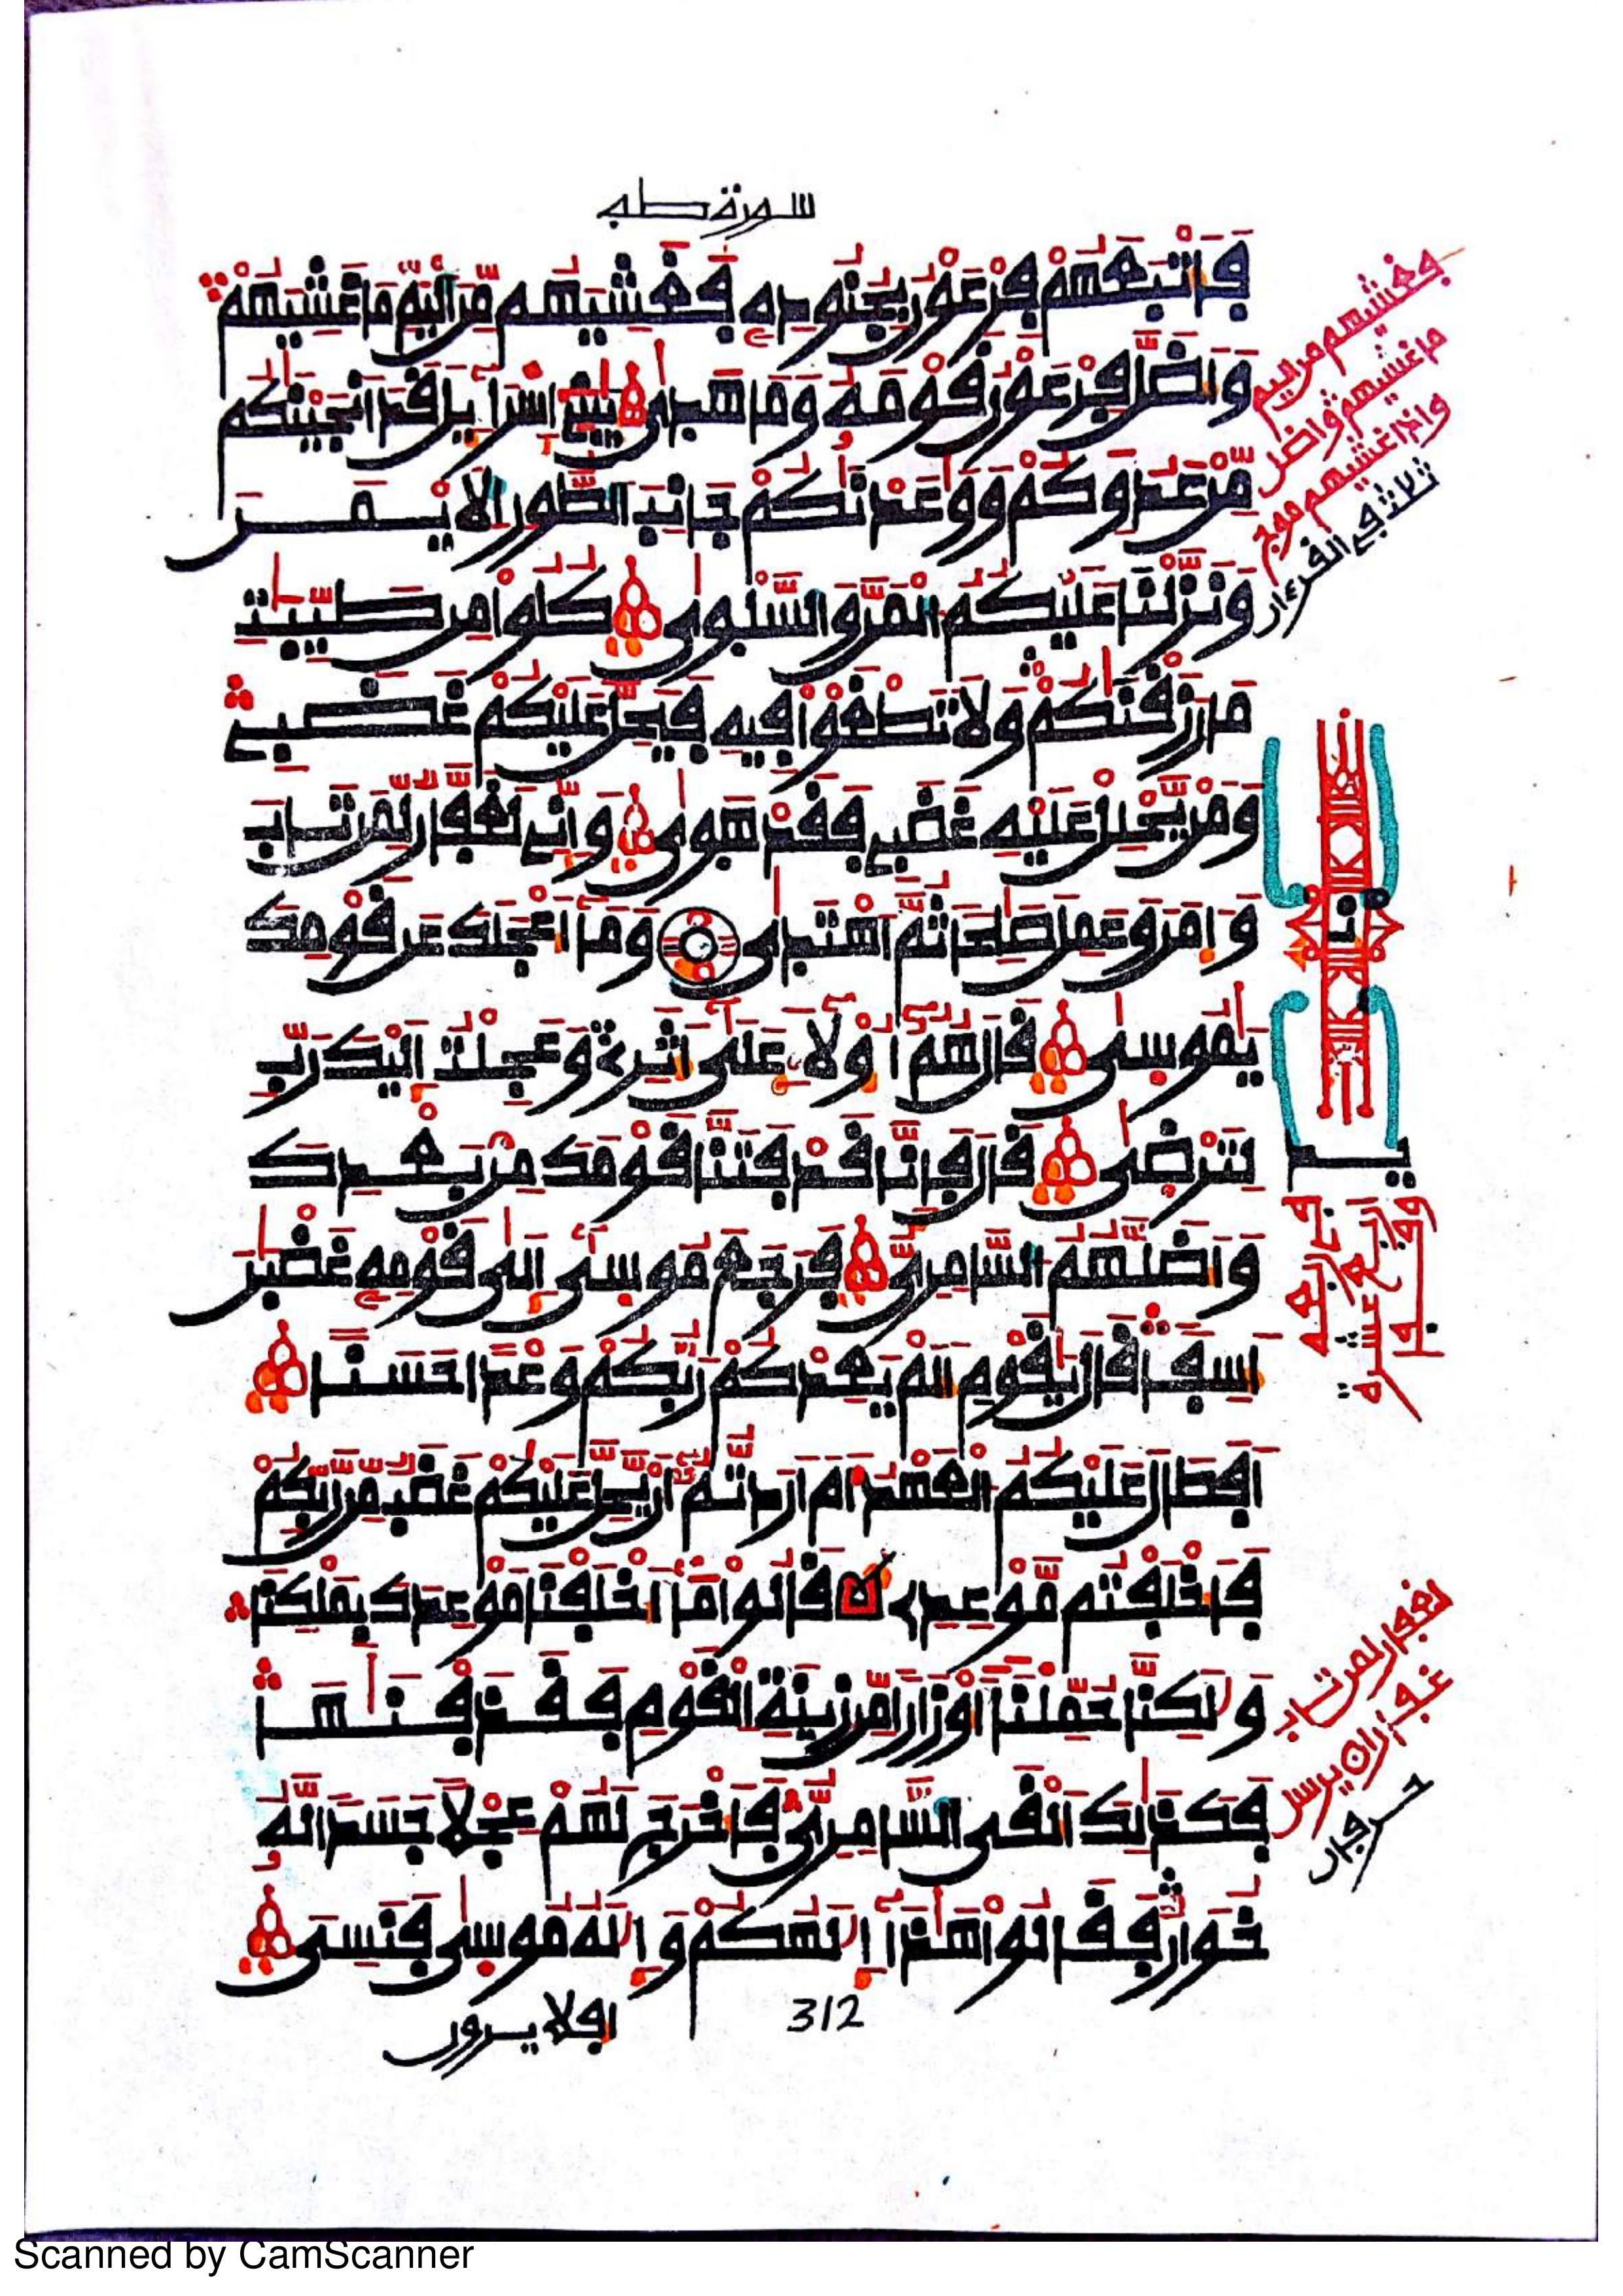 سورة طه
فَأَتْبَعَهُمْ فِرْعَوْنُ بِجُنُودِهِ فَغَشِيَهُم مِّنَ الْيَمِّ مَا غَشِيَهُمْ
وَأَضَلَّ فِرْعَوْنُ قَوْمَهُ وَمَا هَدَىٰ يَٰبَنِي إِسْرَآءِيلَ قَدْ أَنجَيْنَٰكُم
مِّنْ عَدُوِّكُمْ وَوَٰعَدْنَٰكُمْ جَانِبَ الطُّورِ الْأَيْمَنَ
وَنَزَّلْنَا عَلَيْكُمُ الْمَنَّ وَالسَّلْوَىٰ كُلُوا مِن طَيِّبَٰتِ
مَا رَزَقْنَٰكُمْ وَلَا تَطْغَوْا فِيهِ فَيَحِلَّ عَلَيْكُمْ غَضَبِي
وَمَن يَحْلِلْ عَلَيْهِ غَضَبِي فَقَدْ هَوَىٰ وَإِنِّي لَغَفَّارٌ لِّمَن تَابَ
وَءَامَنَ وَعَمِلَ صَٰلِحًا ثُمَّ اهْتَدَىٰ وَمَا أَعْجَلَكَ عَن قَوْمِكَ
يَٰمُوسَىٰ قَالَ هُمْ أُولَآءِ عَلَىٰ أَثَرِي وَعَجِلْتُ إِلَيْكَ رَبِّ
لِتَرْضَىٰ قَالَ فَإِنَّا قَدْ فَتَنَّا قَوْمَكَ مِن بَعْدِكَ
وَأَضَلَّهُمُ السَّامِرِيُّ فَرَجَعَ مُوسَىٰ إِلَىٰ قَوْمِهِ غَضْبَٰنَ
أَسِفًا قَالَ يَٰقَوْمِ أَلَمْ يَعِدْكُمْ رَبُّكُمْ وَعْدًا حَسَنًا
أَفَطَالَ عَلَيْكُمُ الْعَهْدُ أَمْ أَرَدتُّمْ أَن يَحِلَّ عَلَيْكُمْ غَضَبٌ مِّن رَّبِّكُمْ
فَأَخْلَفْتُم مَّوْعِدِي قَالُوا مَا أَخْلَفْنَا مَوْعِدَكَ بِمَلْكِنَا
وَلَٰكِنَّا حُمِّلْنَا أَوْزَارًا مِّن زِينَةِ الْقَوْمِ فَقَذَفْنَٰهَا
فَكَذَٰلِكَ أَلْقَى السَّامِرِيُّ فَأَخْرَجَ لَهُمْ عِجْلًا جَسَدًا لَّهُ
خُوَارٌ فَقَالُوا هَٰذَا إِلَٰهُكُمْ وَإِلَٰهُ مُوسَىٰ فَنَسِيَ
افلا يرون
312
فغشيهم من اليم
ما غشيهم واضل
واذا غشيهم موج
ثلاث في القرءان
لغفار لمن تاب
حرفان
Scanned by CamScanner